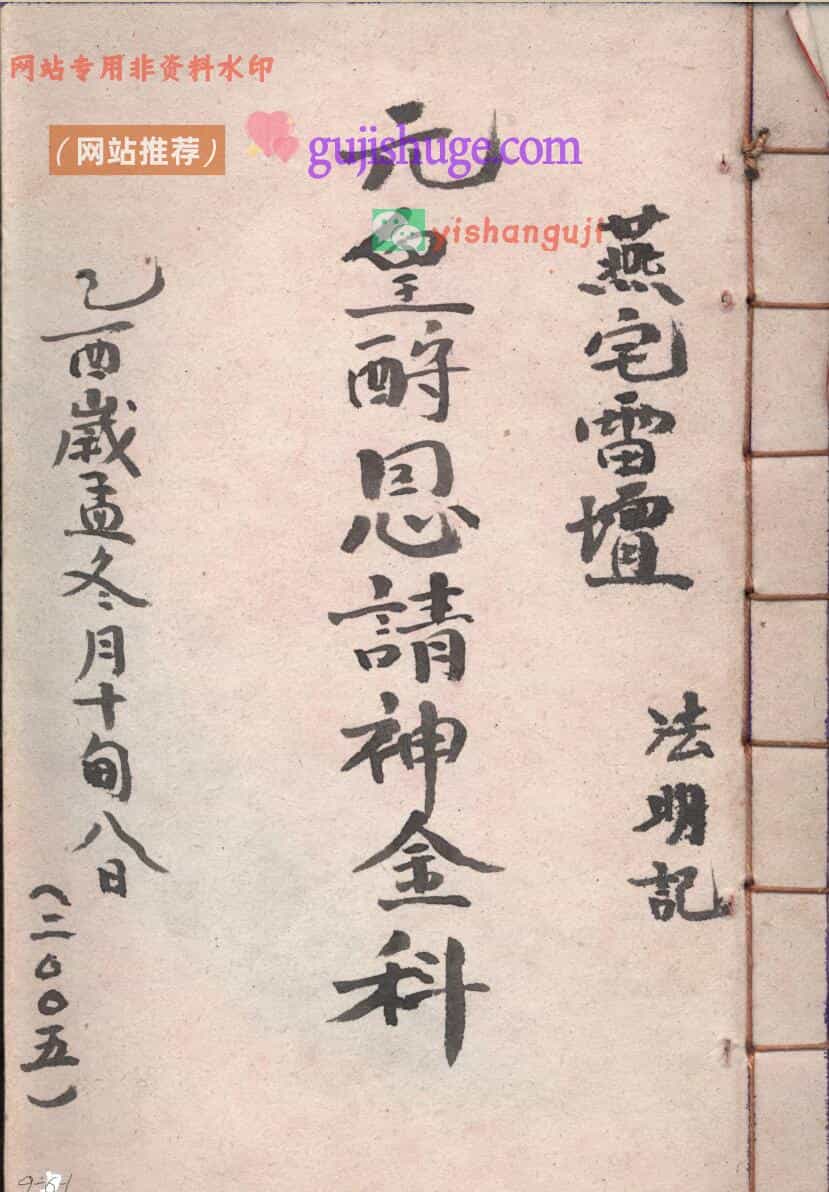 网站专用非资料水印
(网站推荐)
gujishuge.com
yishanguji
燕宅雷壇
法明記
元皇酧恩請神金科
乙酉歲孟冬月十旬八日
(二００五)
9-6-1